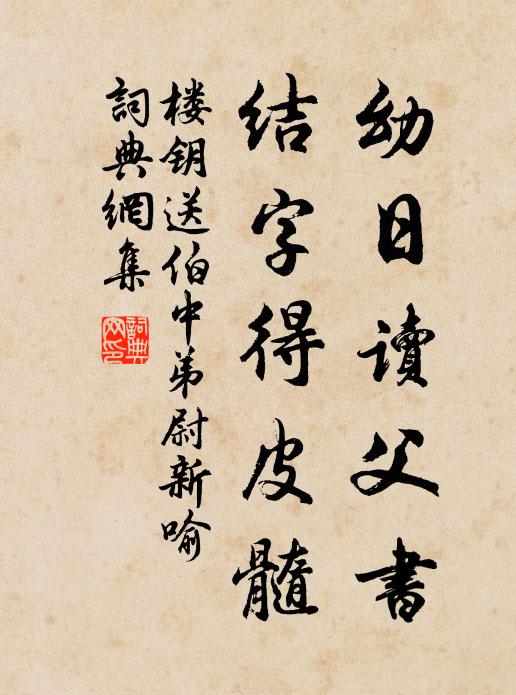 幼日读父書
结字得皮髓
楼钥送伯中弟尉新喻
詞典網集
詞典網印